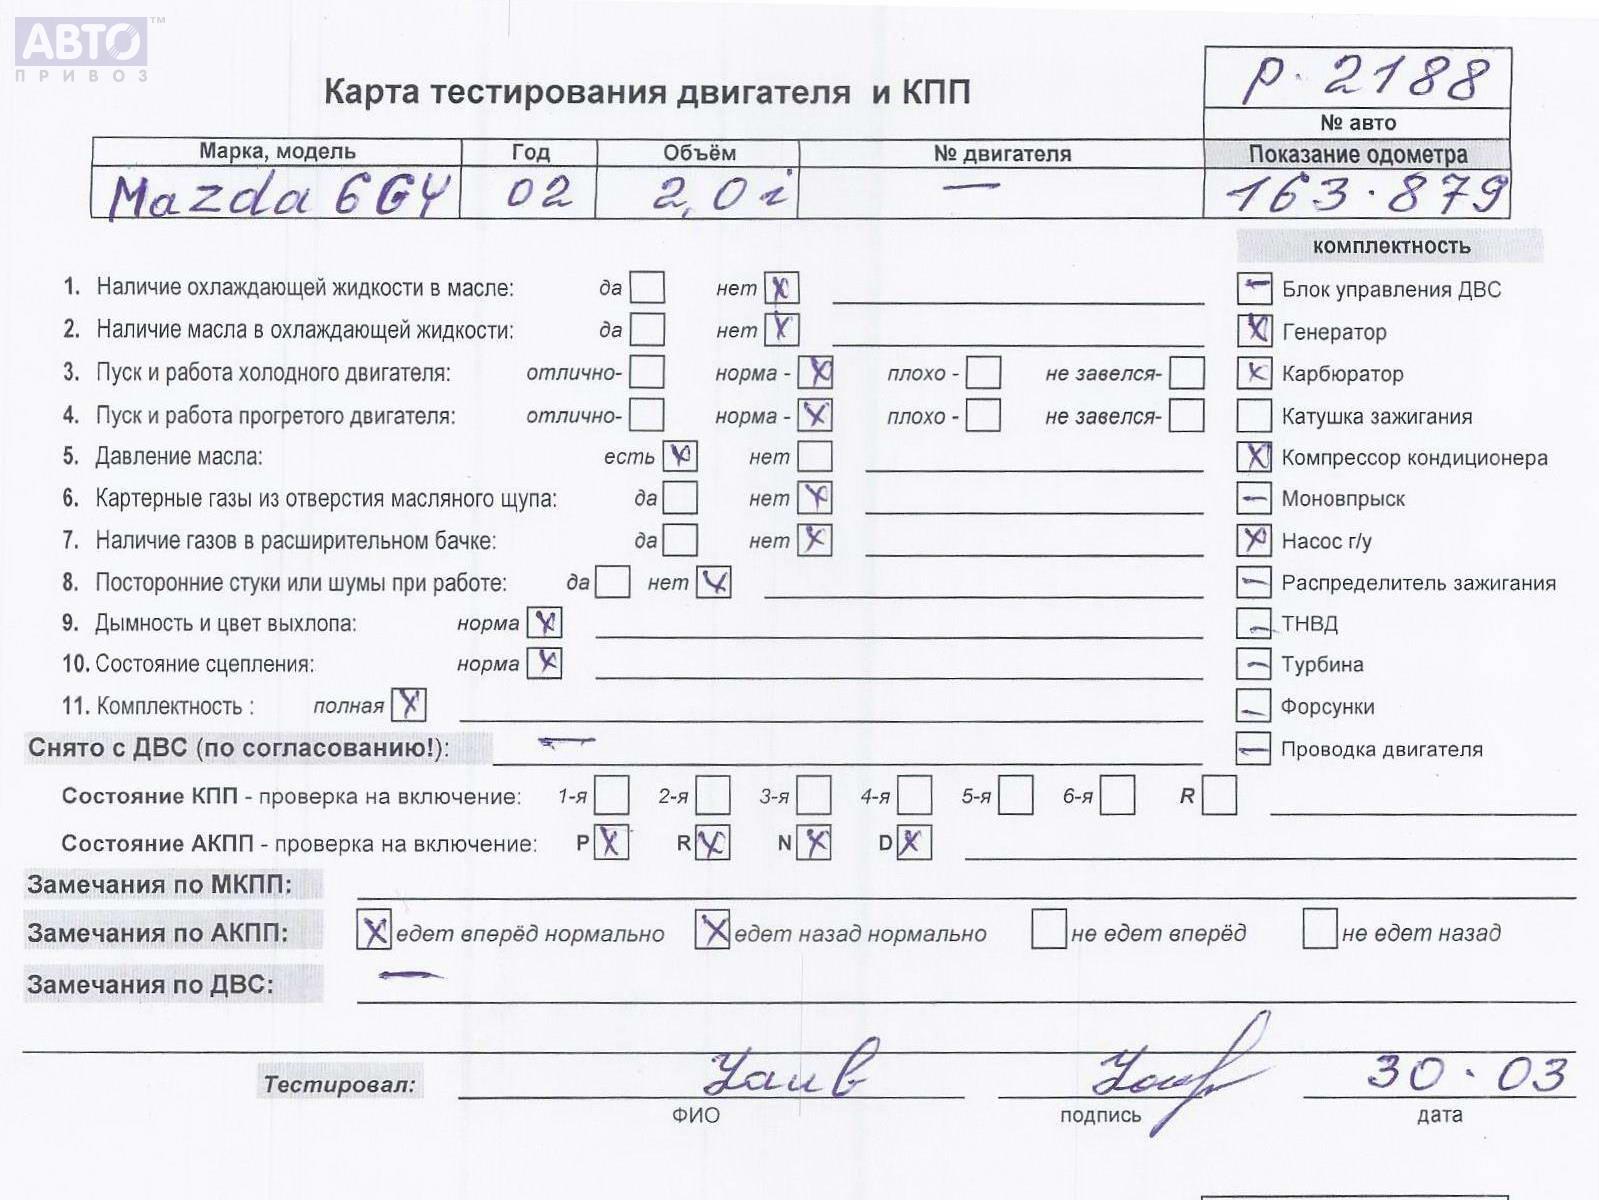 АВТО™
ПРИВОЗ
Карта тестирования двигателя и КПП
р. 2188
№ авто
Марка, модель Год Объём № двигателя Показание одометра
Mazda 6GY 02 2,0i — 163.879
комплектность
1. Наличие охлаждающей жидкости в масле: да нет x — Блок управления ДВС
2. Наличие масла в охлаждающей жидкости: да нет x x Генератор
3. Пуск и работа холодного двигателя: отлично- норма - x плохо - не завелся- x Карбюратор
4. Пуск и работа прогретого двигателя: отлично- норма - x плохо - не завелся- Катушка зажигания
5. Давление масла: есть x нет x Компрессор кондиционера
6. Картерные газы из отверстия масляного щупа: да нет x — Моновпрыск
7. Наличие газов в расширительном бачке: да нет x x Насос г/у
8. Посторонние стуки или шумы при работе: да нет x — Распределитель зажигания
9. Дымность и цвет выхлопа: норма x — ТНВД
10. Состояние сцепления: норма x — Турбина
11. Комплектность : полная x — Форсунки
Снято с ДВС (по согласованию!): — — Проводка двигателя
Состояние КПП - проверка на включение: 1-я 2-я 3-я 4-я 5-я 6-я R
Состояние АКПП - проверка на включение: P x R x N x D x
Замечания по МКПП:
Замечания по АКПП: x едет вперёд нормально x едет назад нормально не едет вперёд не едет назад
Замечания по ДВС: —
Тестировал: 30.03
ФИО подпись дата